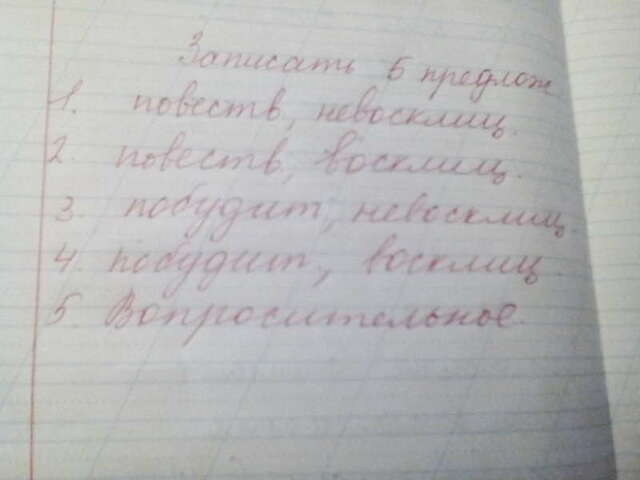 Записать 5 предлож
1. повеств, невосклиц.
2. повеств, восклиц.
3. побудит, невосклиц.
4. побудит, восклиц.
5. Вопросительное.